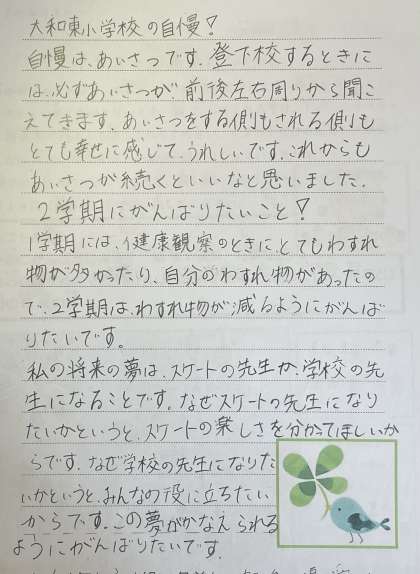 大和東小学校の自慢!
自慢は、あいさつです。登下校するときに
は、必ずあいさつが、前後左右周りから聞こ
えてきます。あいさつをする側もされる側も
とても幸せに感じて、うれしいです。これからも
あいさつが続くといいなと思いました。
2学期にがんばりたいこと!
1学期には、健康観察のときに、とてもわすれ
物が多かったり、自分のわすれ物があったの
で、2学期は、わすれ物が減るようにがんば
りたいです。
私の将来の夢は、スケートの先生か、学校の先
生になることです。なぜスケートの先生になり
たいかというと、スケートの楽しさを分かってほしいか
らです。なぜ学校の先生になりた
いかというと、みんなの役に立ちたい
からです。この夢がかなえられる
ようにがんばりたいです。